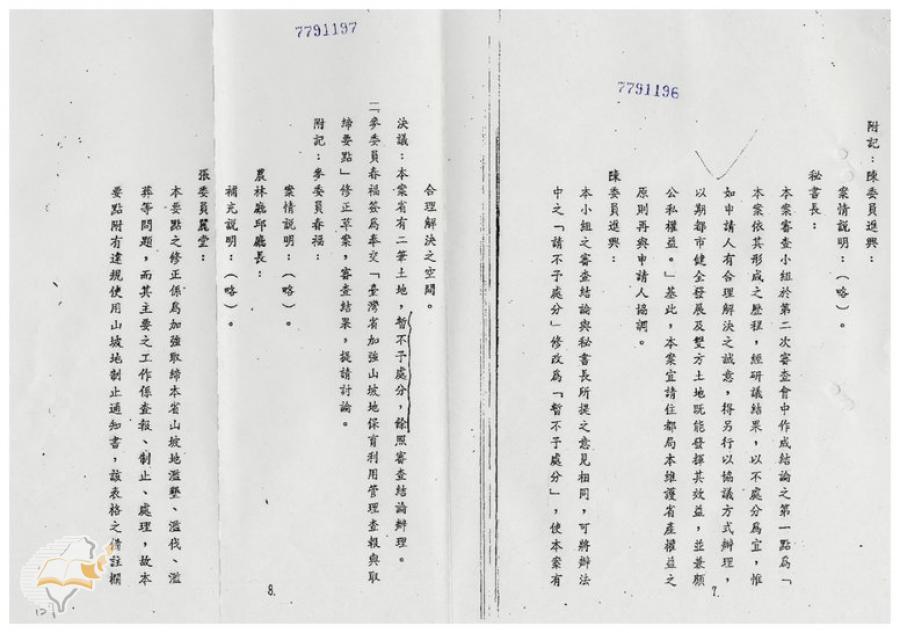 7791196
附記：陳委員進興：
案情說明：（略）。
秘書長：
本案審查小組於第二次審查會中作成結論之第一點為「
本案依其形成之歷程，經研議結果，以不處分為宜，惟
如申請人有合理解決之誠意，得另行以協議方式辦理，
以期都市健全發展及雙方土地既能發揮其效益，並兼顧
公私權益。」基此，本案宜請住都局本維護省產權益之
原則再與申請人協調。
陳委員進興：
本小組之審查結論與秘書長所提之意見相同，可將辦法
中之「請不予處分」修改為「暫不予處分」，使本案有
7.
7791197
合理解決之空間。
決議：本案省有二筆土地，暫不予處分，餘照審查結論辦理。
二、麥委員春福簽為奉交「臺灣省加強山坡地保育利用管理查報與取
締要點」修正草案，審查結果，提請討論。
附記：麥委員春福：
案情說明：（略）。
農林廳邱廳長：
補充說明：（略）。
張委員麗堂：
本要點之修正係為加強取締本省山坡地濫墾、濫伐、濫
葬等問題，而其主要之工作係查報、制止、處理，故本
要點附有違規使用山坡地制止通知書，該表格之備註欄
8.
12